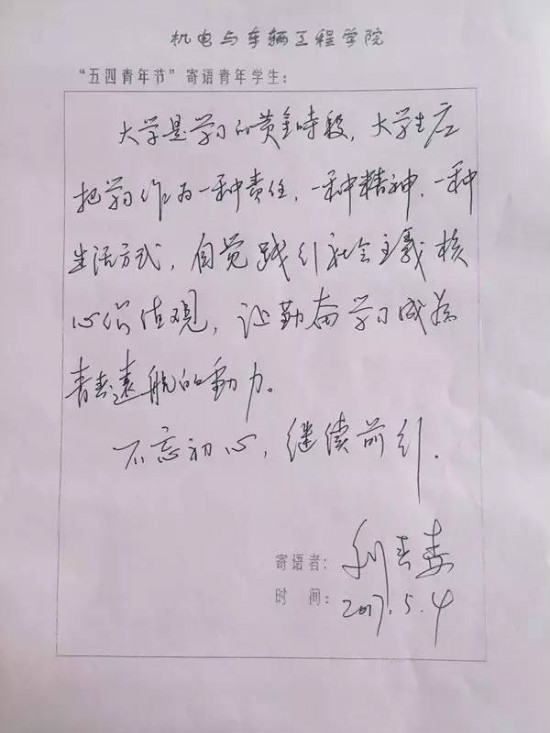 机电与车辆工程学院
“五四青年节”寄语青年学生：
大学是学习的黄金时段，大学生应
把学习作为一种责任、一种精神、一种
生活方式，自觉践行社会主義核
心价值观，让勤奋学习成为
青春遠航的動力。
不忘初心，继续前行.
寄语者：
时 间： 2017.5.4